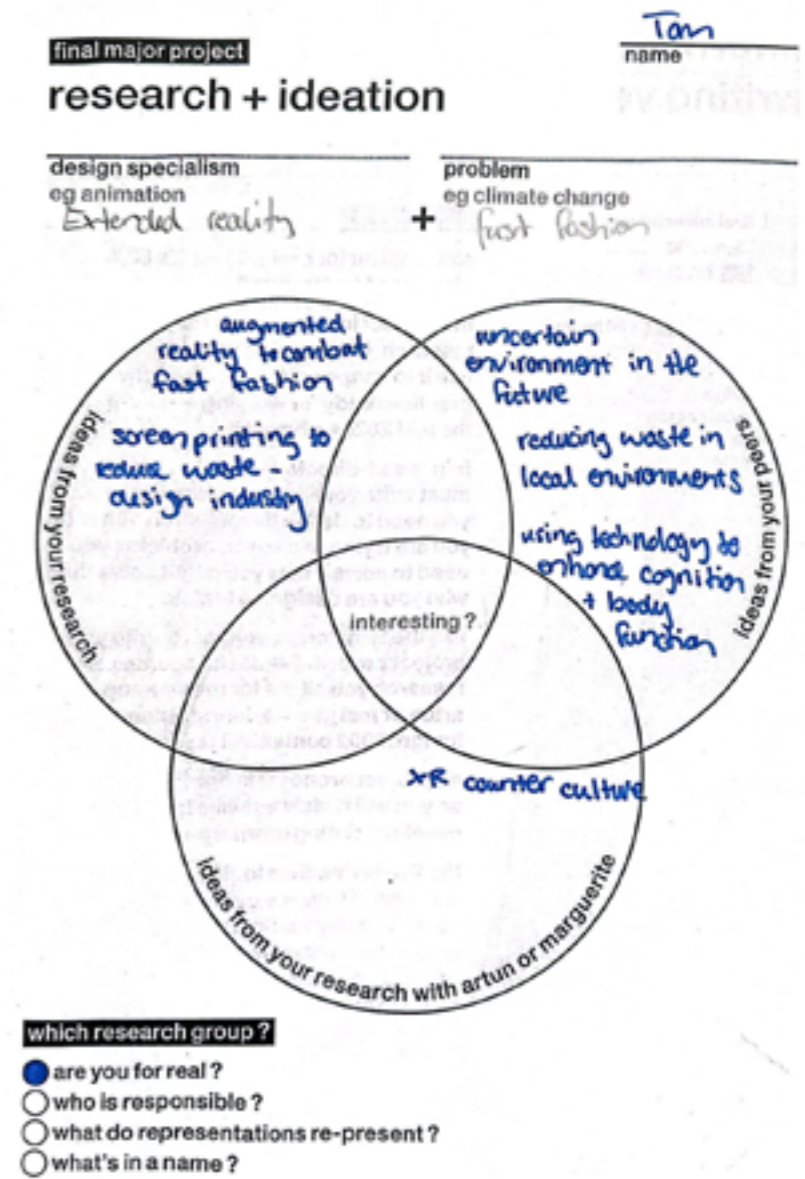 Tom
name
final major project
research + ideation
design specialism
eg animation
Extended reality
+
problem
eg climate change
fast fashion
augmented
reality to combat
fast fashion
screenprinting to
reduce waste -
design industry
ideas from your research
uncertain
environment in the
future
reducing waste in
local environments
using technology to
enhance cognition
+ body
function
ideas from your peers
interesting?
XR counter culture
ideas from your research with artun or marguerite
which research group?
are you for real?
who is responsible?
what do representations re-present?
what's in a name?